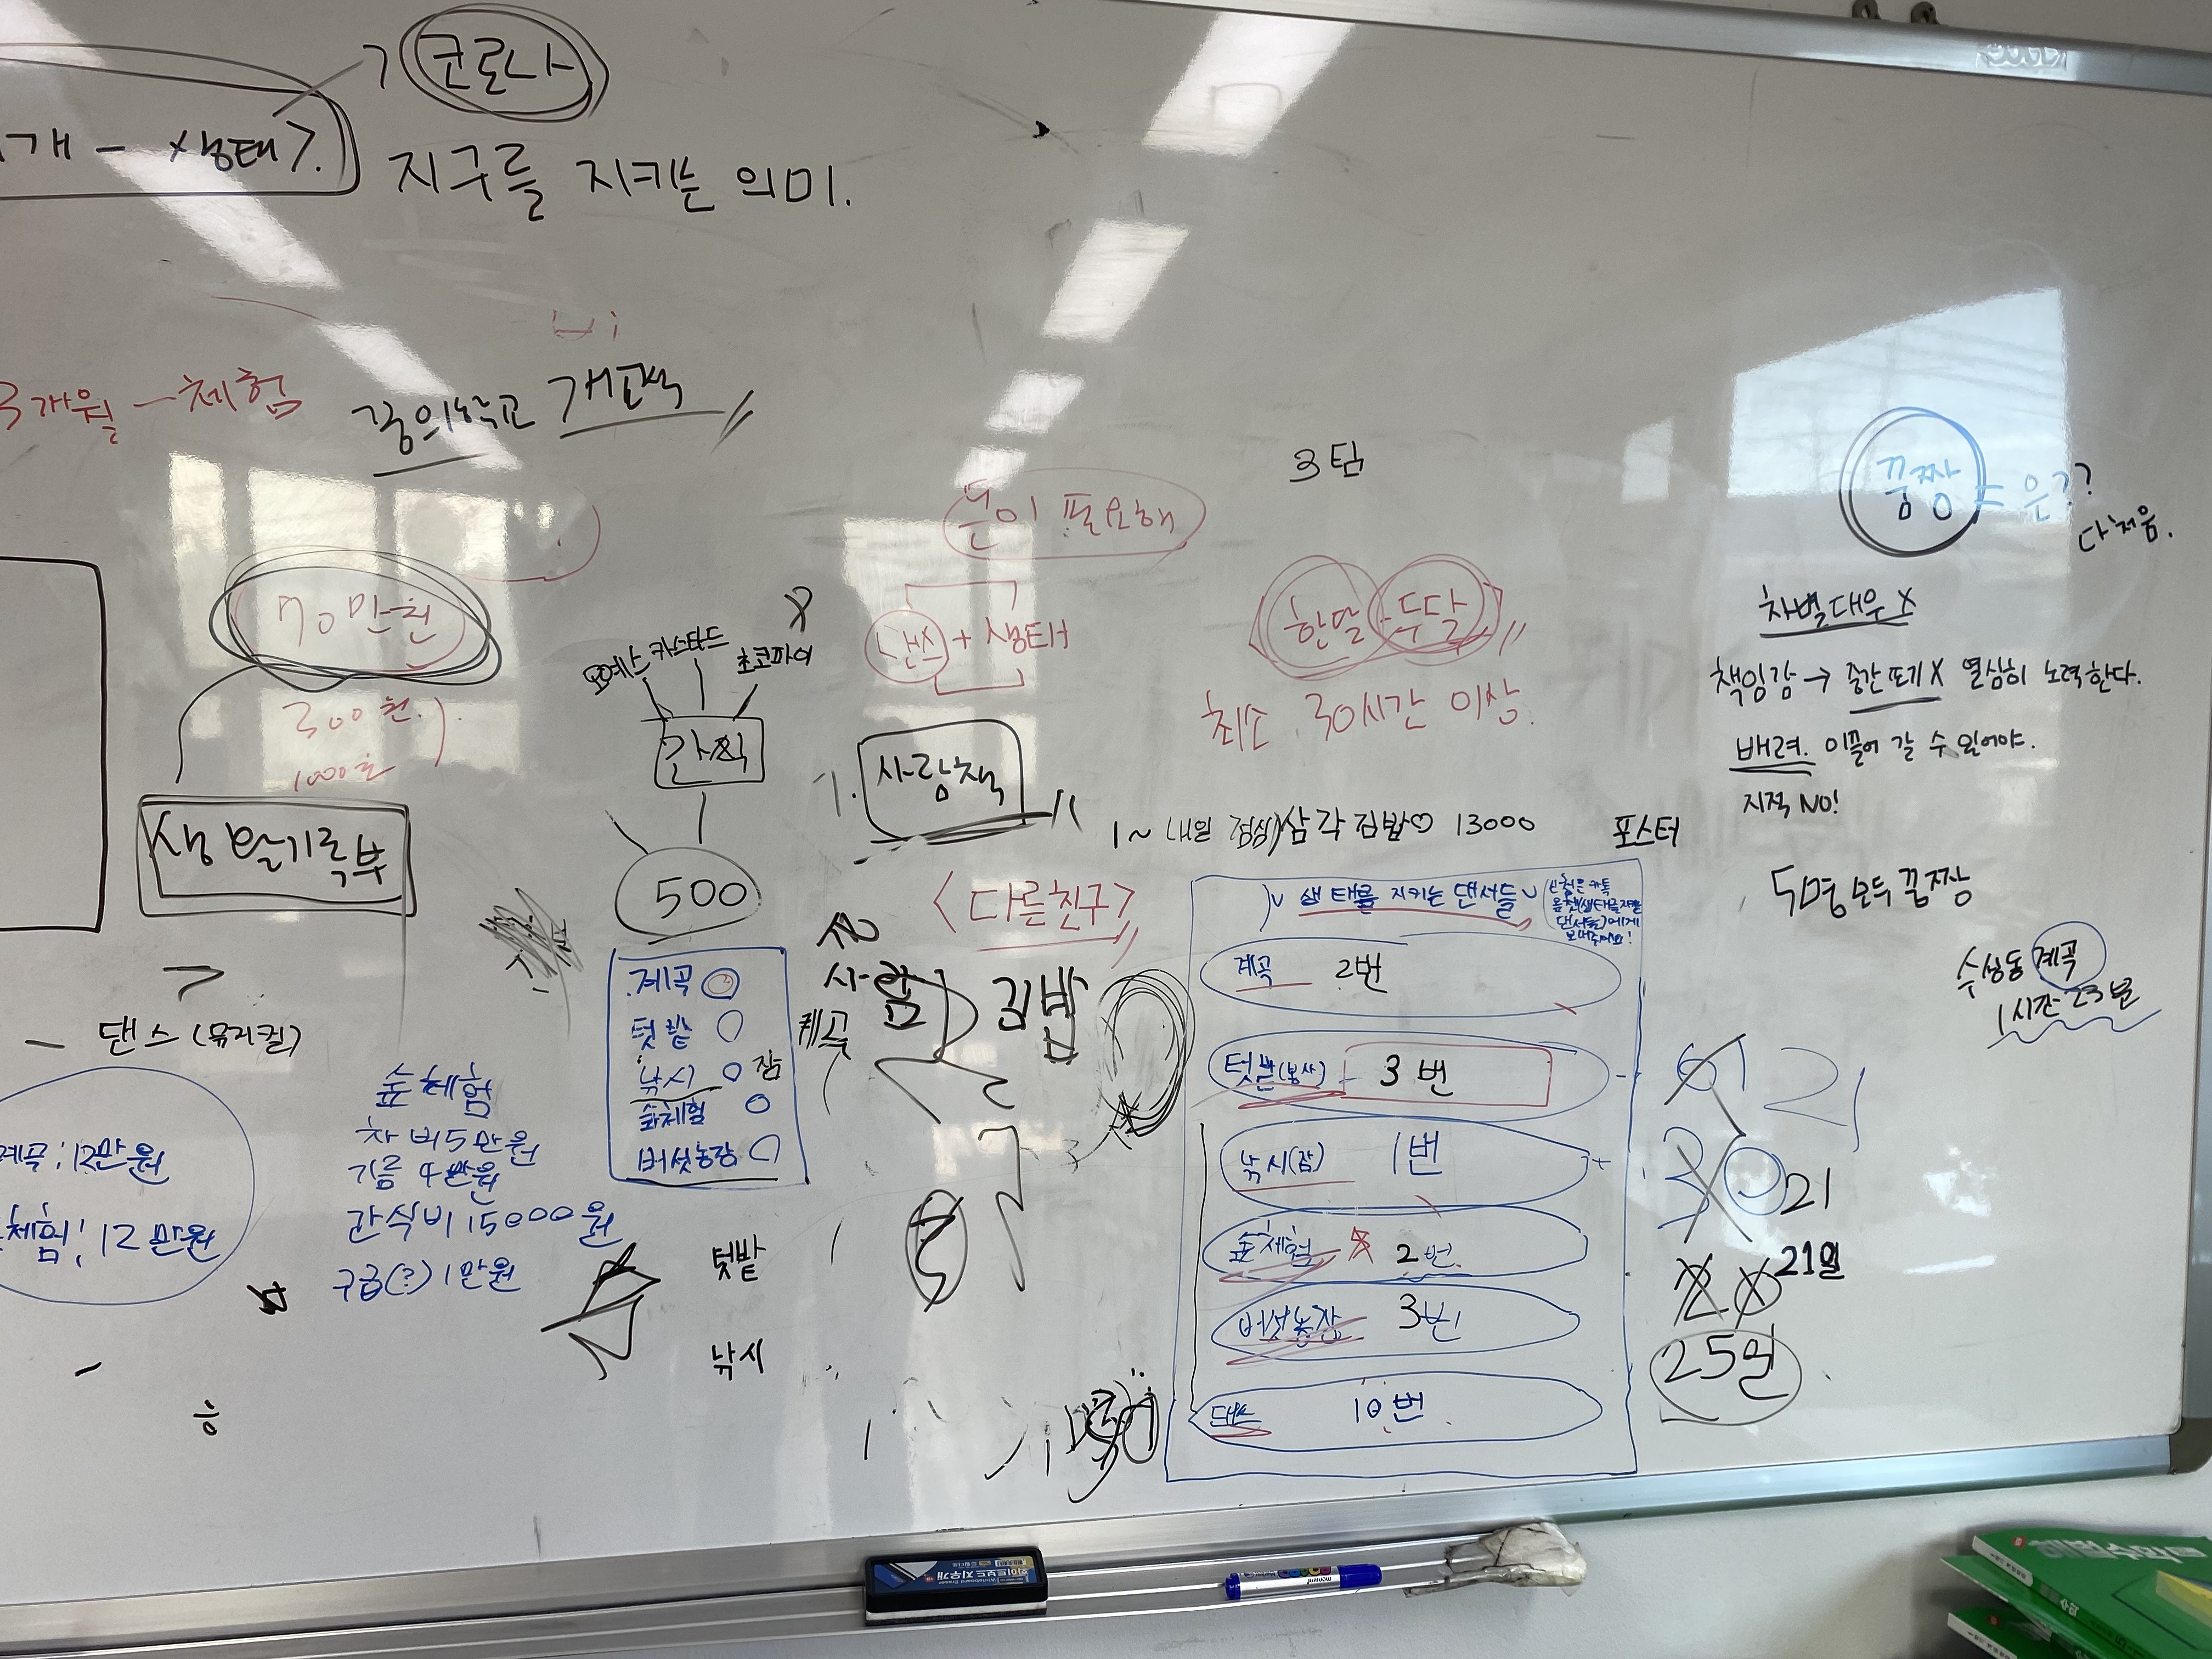 코로나
개 - 생태
지구를 지키는 의미.
3개월 - 체험
꿈의학교 개교식
3팀
돈이 필요해
꿈짱 = 은??
다 처음.
70만원
댄스 + 생태
한달 - 두달
최소 30시간 이상.
300원
1000원
카스타드
초코파이
간식
500
생활기록부
사람책
차별대우 X
책임감 → 중간포기 X 열심히 노력한다.
배려. 이끌어 갈 수 있어야.
지적 NO!
5명 모두 꿈짱
1~ 내일 점심) 삼각김밥♡ 13000
포스터
<다른친구>
생태를 지키는 댄서들
수성동 계곡
1시간 23분
계곡
텃밭
낚시 잠
숲체험
버섯농장
계곡
사람
김밥
계곡 2번
텃밭(봉사) - 3번
낚시(잠) 1번
숲체험 2번
버섯농장 3번
댄스 10번
21
30 21
20 21일
25일
- 댄스 (뮤지컬)
계곡: 12만원
체험: 12만원
숲체험
차비 5만원
기름 4만원
간식비 15000원
구급(?) 1만원
텃밭
낚시
화이트보드 지우개
monami
수학